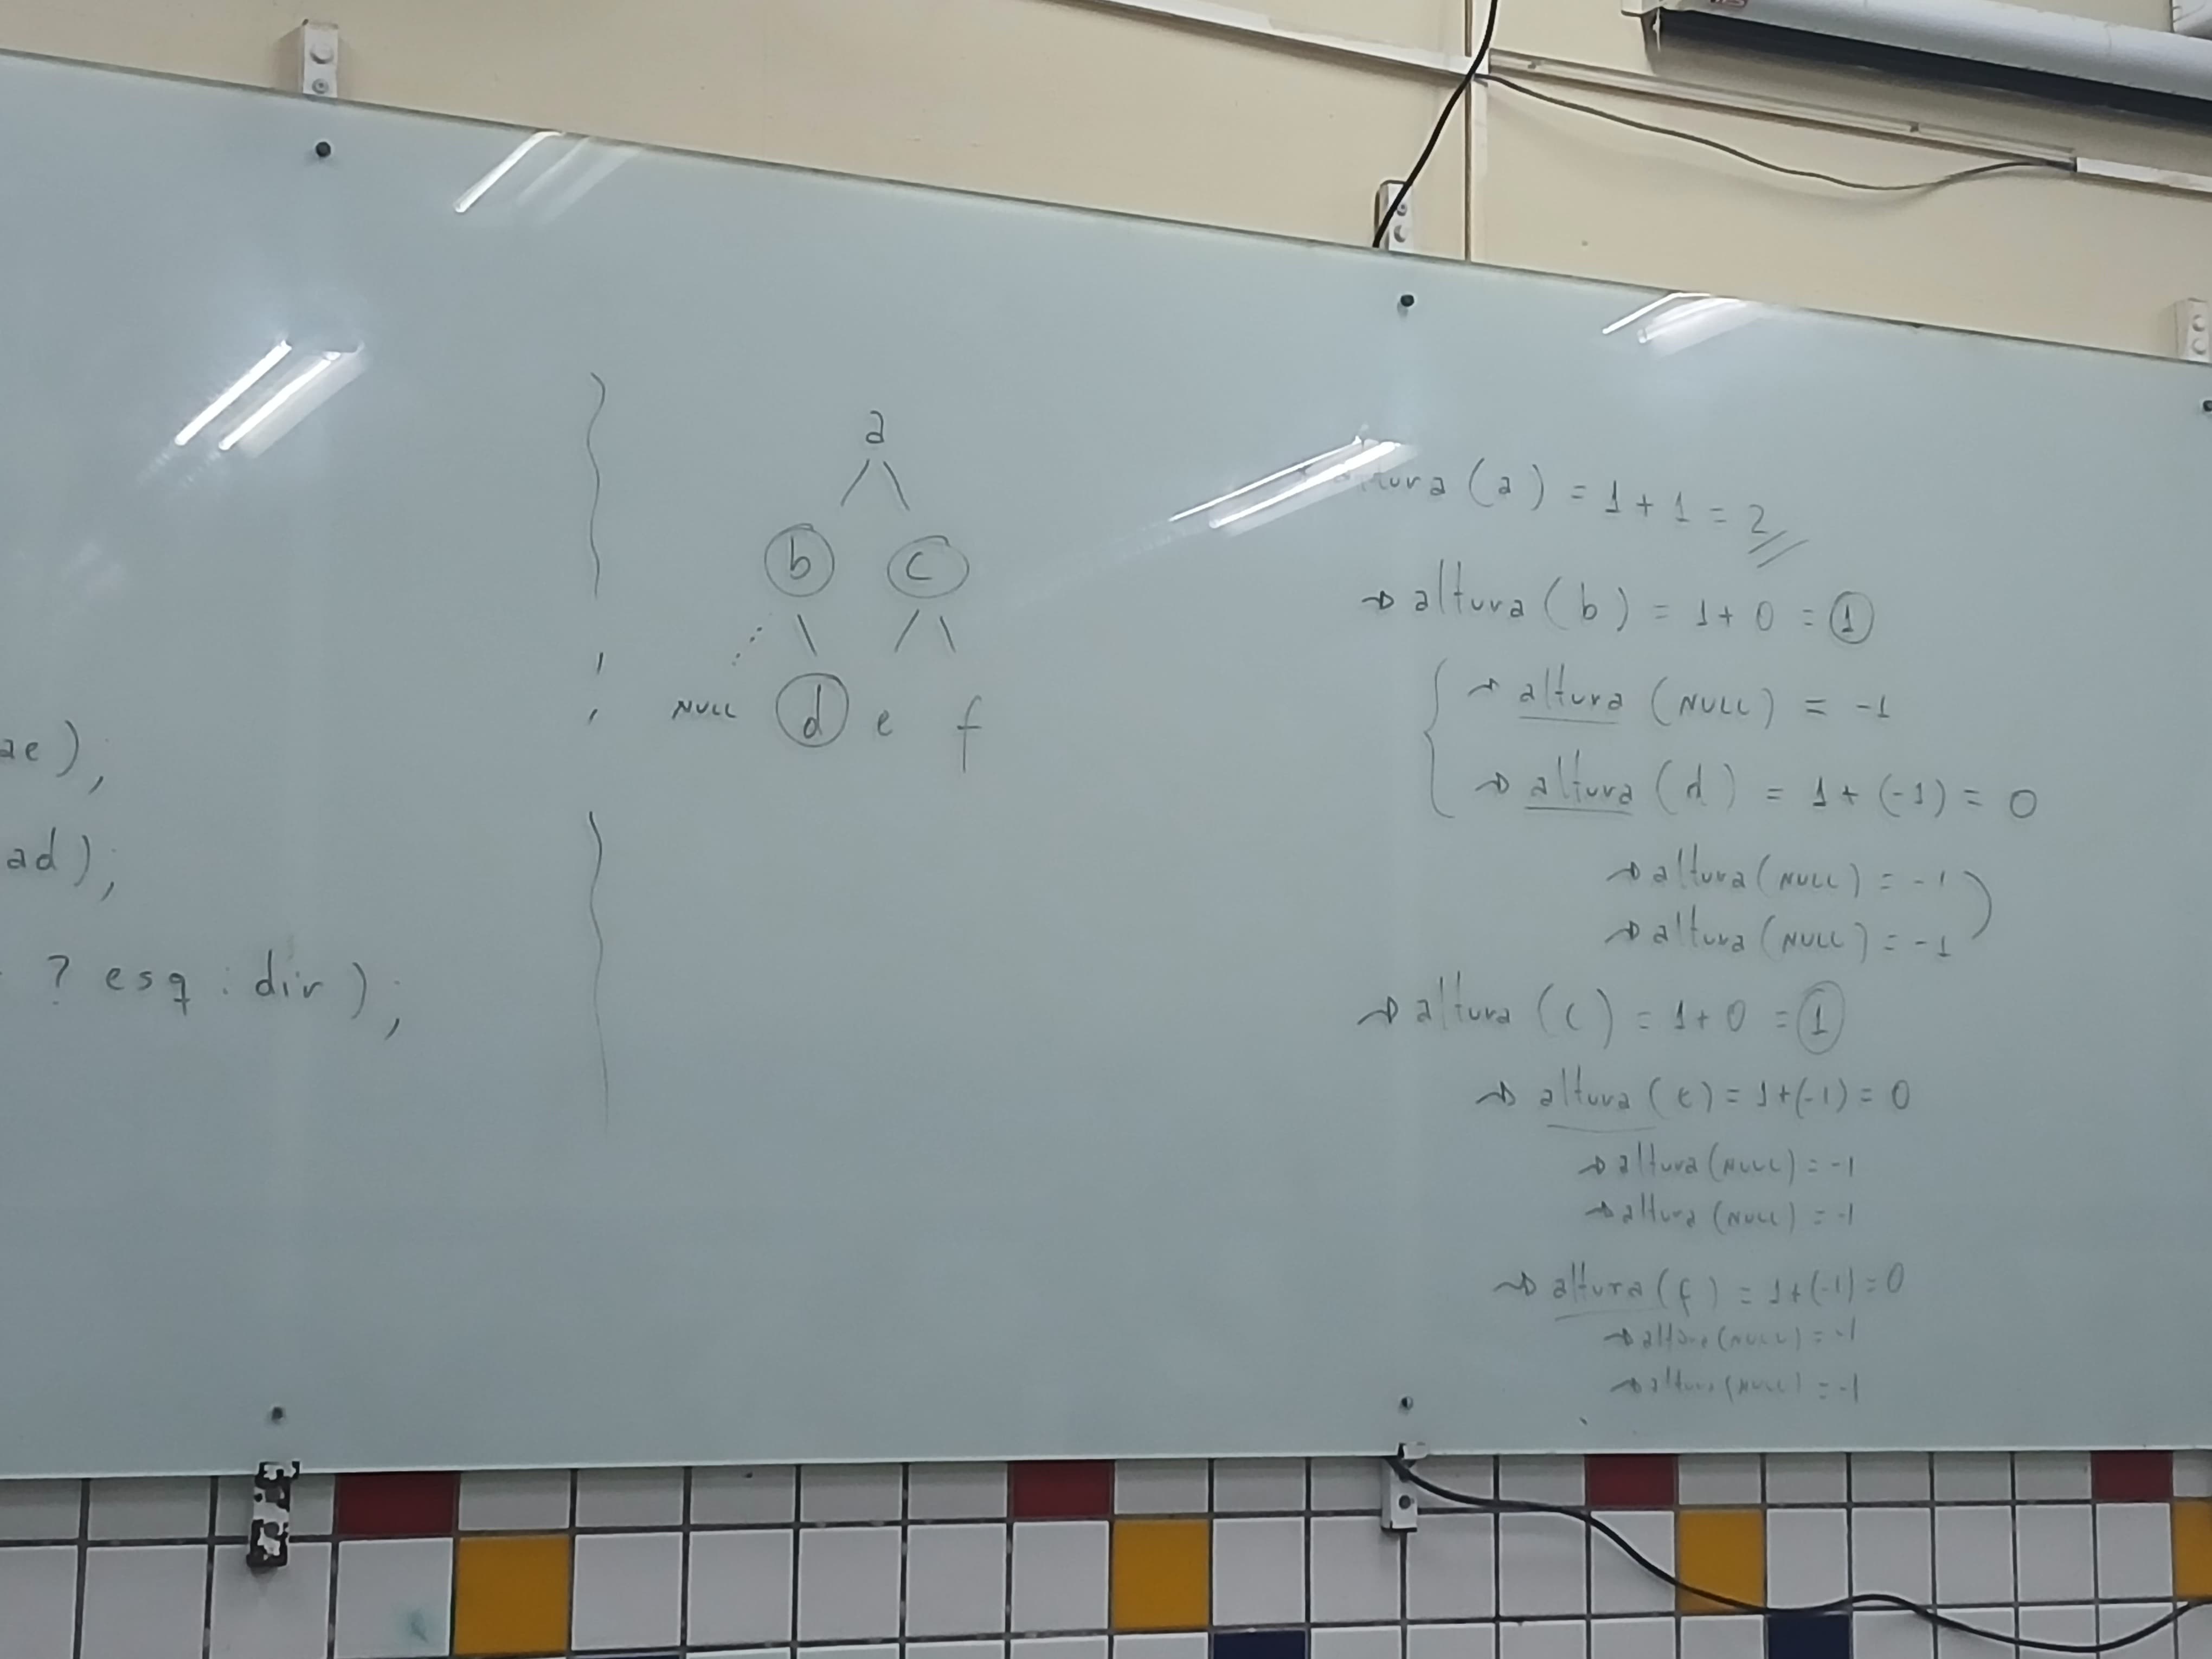 ae);
ad);
? esq : dir);
a
b c
NULL d e f
altura (a) = 1 + 1 = 2
→ altura (b) = 1 + 0 = 1
→ altura (NULL) = -1
→ altura (d) = 1 + (-1) = 0
→ altura (NULL) = -1
→ altura (NULL) = -1
→ altura (c) = 1 + 0 = 1
→ altura (e) = 1 + (-1) = 0
→ altura (NULL) = -1
→ altura (NULL) = -1
→ altura (f) = 1 + (-1) = 0
→ altura (NULL) = -1
→ altura (NULL) = -1